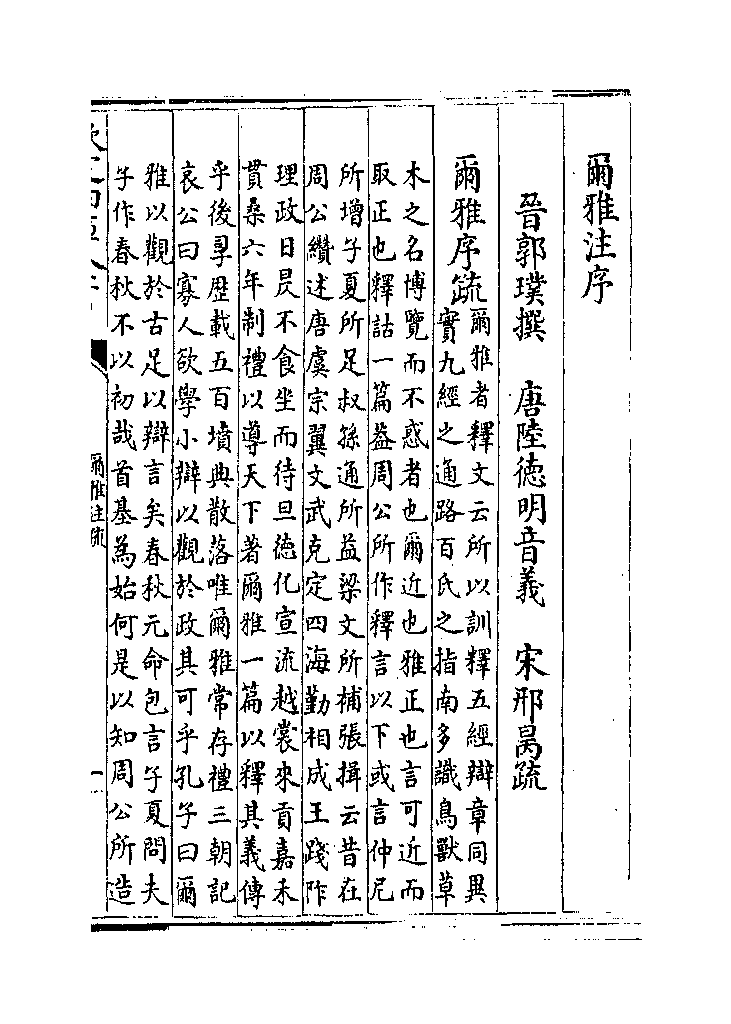 爾雅注序
晉郭璞撰　唐陸德明音義　宋邢昺疏
爾雅序疏
爾雅者釋文云所以訓釋五經辯章同異
實九經之通路百氏之指南多識鳥獸草
木之名博覽而不惑者也爾近也雅正也言可近而
取正也釋詁一篇葢周公所作釋言以下或言仲尼
所增子夏所足叔孫通所益梁文所補張揖云昔在
周公纘述唐虞宗翼文武克定四海勤相成王踐阼
理政日昃不食坐而待旦德化宣流越裳來貢嘉禾
貫桑六年制禮以導天下著爾雅一篇以釋其義傳
乎後孠歴載五百墳典散落唯爾雅常存禮三朝記
哀公曰寡人欲學小辯以觀於政其可乎孔子曰爾
雅以觀於古足以辯言矣春秋元命包言子夏問夫
子作春秋不以初哉首基為始何是以知周公所造
爾雅注疏
一